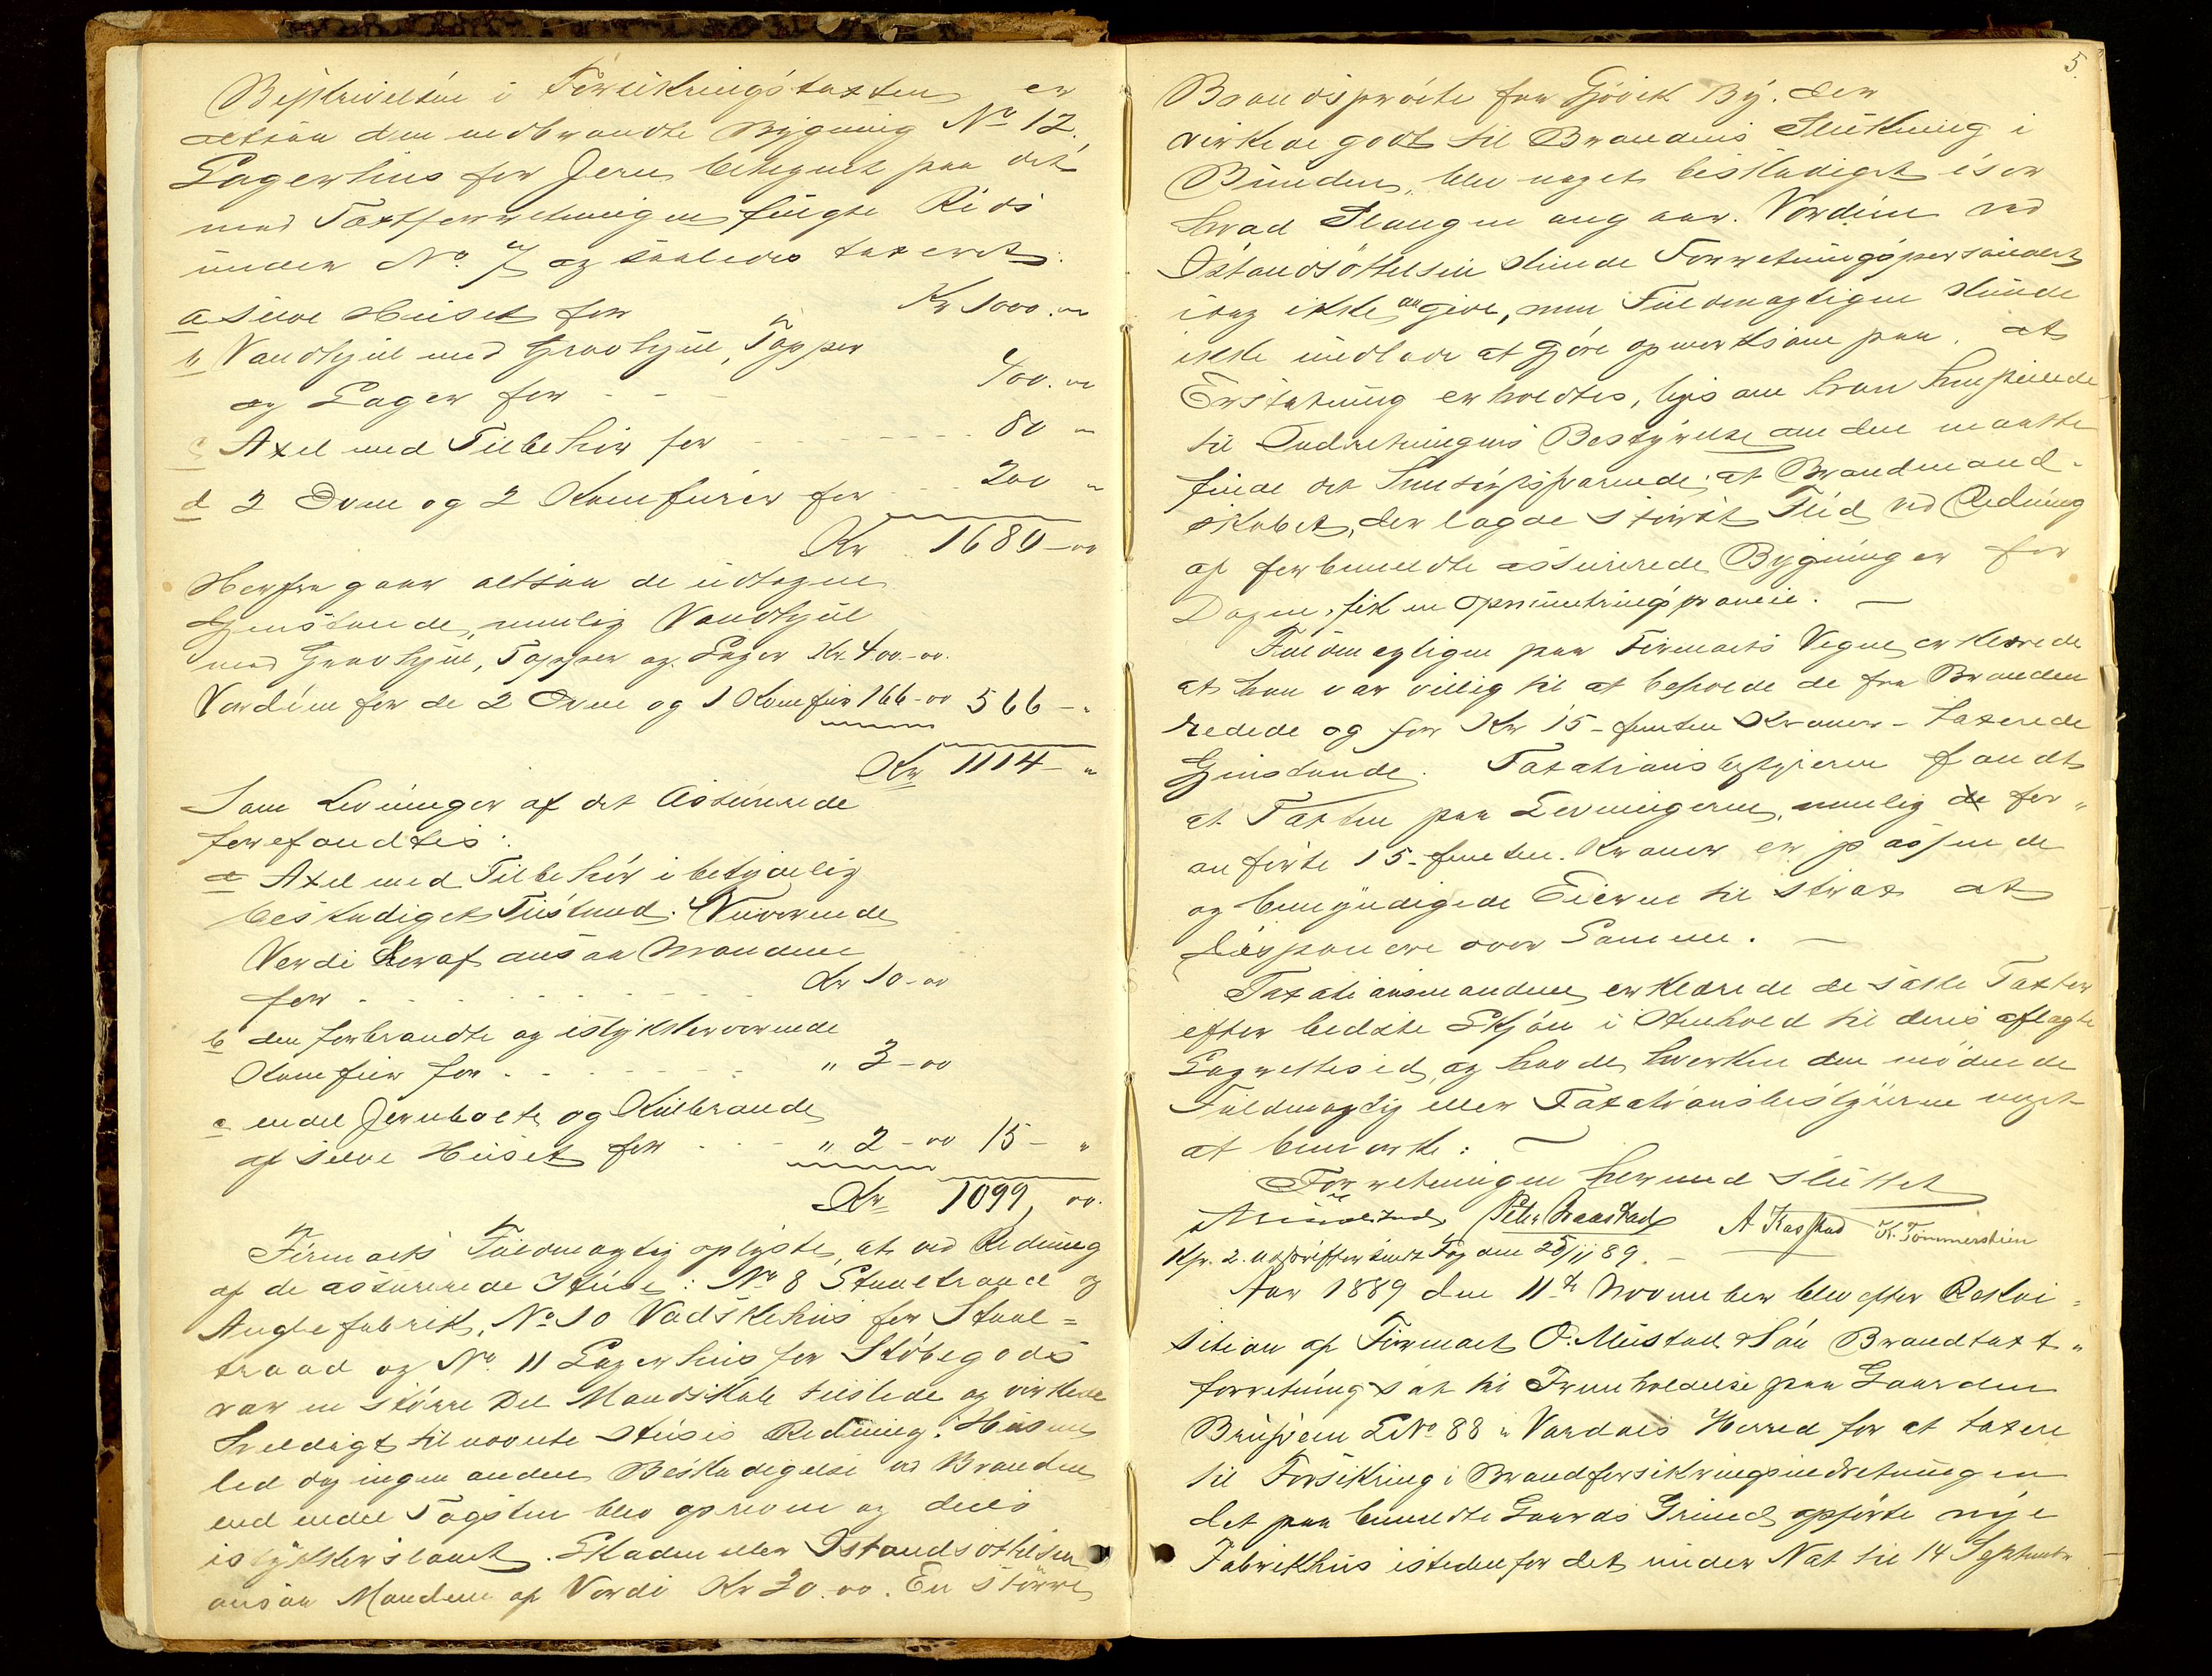 Beskrivelsen i Forsikringstaxten er
altsaa den nedbrændte Bygning No 12.
Lagerhus for Jern betegnet paa det
med Taxtforretningen fulgte Rids
under No. 7 og saaledes taxeret:
a selve Huset for Kr 1000.00
b Vandhjul med Gravhjul, Tapper
og Lager for - - 400.00
c Axel med Tilbehør for - - - 80 "
d 2 Ovne og 2 Komfurer for - - 200 "
Kr 1680-00
Herfra gaar altsaa de udtagne
Gjenstande, nemlig Vandhjul
med Gravhjul, Tapper og Lager Kr. 400-00.
Værdien for de 2 Ovne og 1 Komfur 166-00 566-"
Kr 1114-"
Som Levninger af det Assurerede
forefandtes:
a Axel med Tilbehør i betydelig
beskadiget Tilstand. Nuværende
Værdi heraf ansaa Mændene
for - - - - Kr 10-00
b den forbrændte og istykkerrevne
Komfur for - - - " 3-00
c endel Jernbolte og Kulbrande
af selve Huset for - - " 2-00 15-"
Kr 1099, 00.
Firmaets Fuldmægtig oplyste, at ved Redning
af de assurerede Huse: No 8 Staaltraad og
Anglefabrik, No 10 Vadskehus for Staal=
traad og No 11 Lagerhus for Støbegods
var en større Del Mandskab tilstede og virkede
heldigt til nævnte Huses Redning. Husene
led dog ingen anden Beskadigelse ved Branden
end endel Tagsten blev oprevne og dels
istykkerslaaet. Skaden eller Istandsættelsen
ansaa Mændene af Værdi Kr 20.00. En større
5.
Brandsprøite fra Gjøvik By, der
virkede godt til Brandens Slukning i
Bunden, blev noget beskadiget især
hvad Slangen angaar. Værdien ved
Istandsættelsen kunde Forretningspersonalet
idag ikke angive, men Fuldmægtigen kunde
ikke undlade at gjøre opmerksom paa, at
Erstatning erholdtes, ligesom han henstillede
til Indretningens Bestyrelse om den maatte
finde det hensigtssvarende, at Brandmand-
skabet, der lagde størst Flid ved Redning
af forbemeldte assurerede Bygninger for
Dagen, fik en Opmuntringspræmie. —
Fuldmægtigen paa Firmaets Vegne erklærede
at han var villig til at beholde de fra Branden
redede og for Kr 15 - femten Kroner - taxerede
Gjenstande. Taxationsbestyreren fandt
at Taxten paa Levningerne, nemlig de for"
anførte 15 - femten Kroner er passende
og bemyndigede Eieren til strax at
disponere over Samme. —
Taxationsmændene erklærede de satte Taxter
efter bedste Skjøn i Henhold til deres aflagte
Lagrettesed, og havde hverken den mødende
Fuldmægtig eller Taxationsbestyreren noget
at bemerke: —
Forretningen hermed sluttet
Peter Braastad A Kasstad K. Tømmerstuen
2. Udskrifter sendt Fog den 25/11 89.
Aar 1889 den 11te November blev efter Rekvi=
sition af Firmaet O. Mustad & Søn Brandtaxt"
forretning sat til Fremholdelse paa Gaarden
Brusveen LNo 88 i Vardals Herred for at taxere
til Forsikring i Brandforsikringsindretningen
det paa bemeldte Gaards Grund opførte nye
Fabrikhus istedenfor det under Nat til 14 September